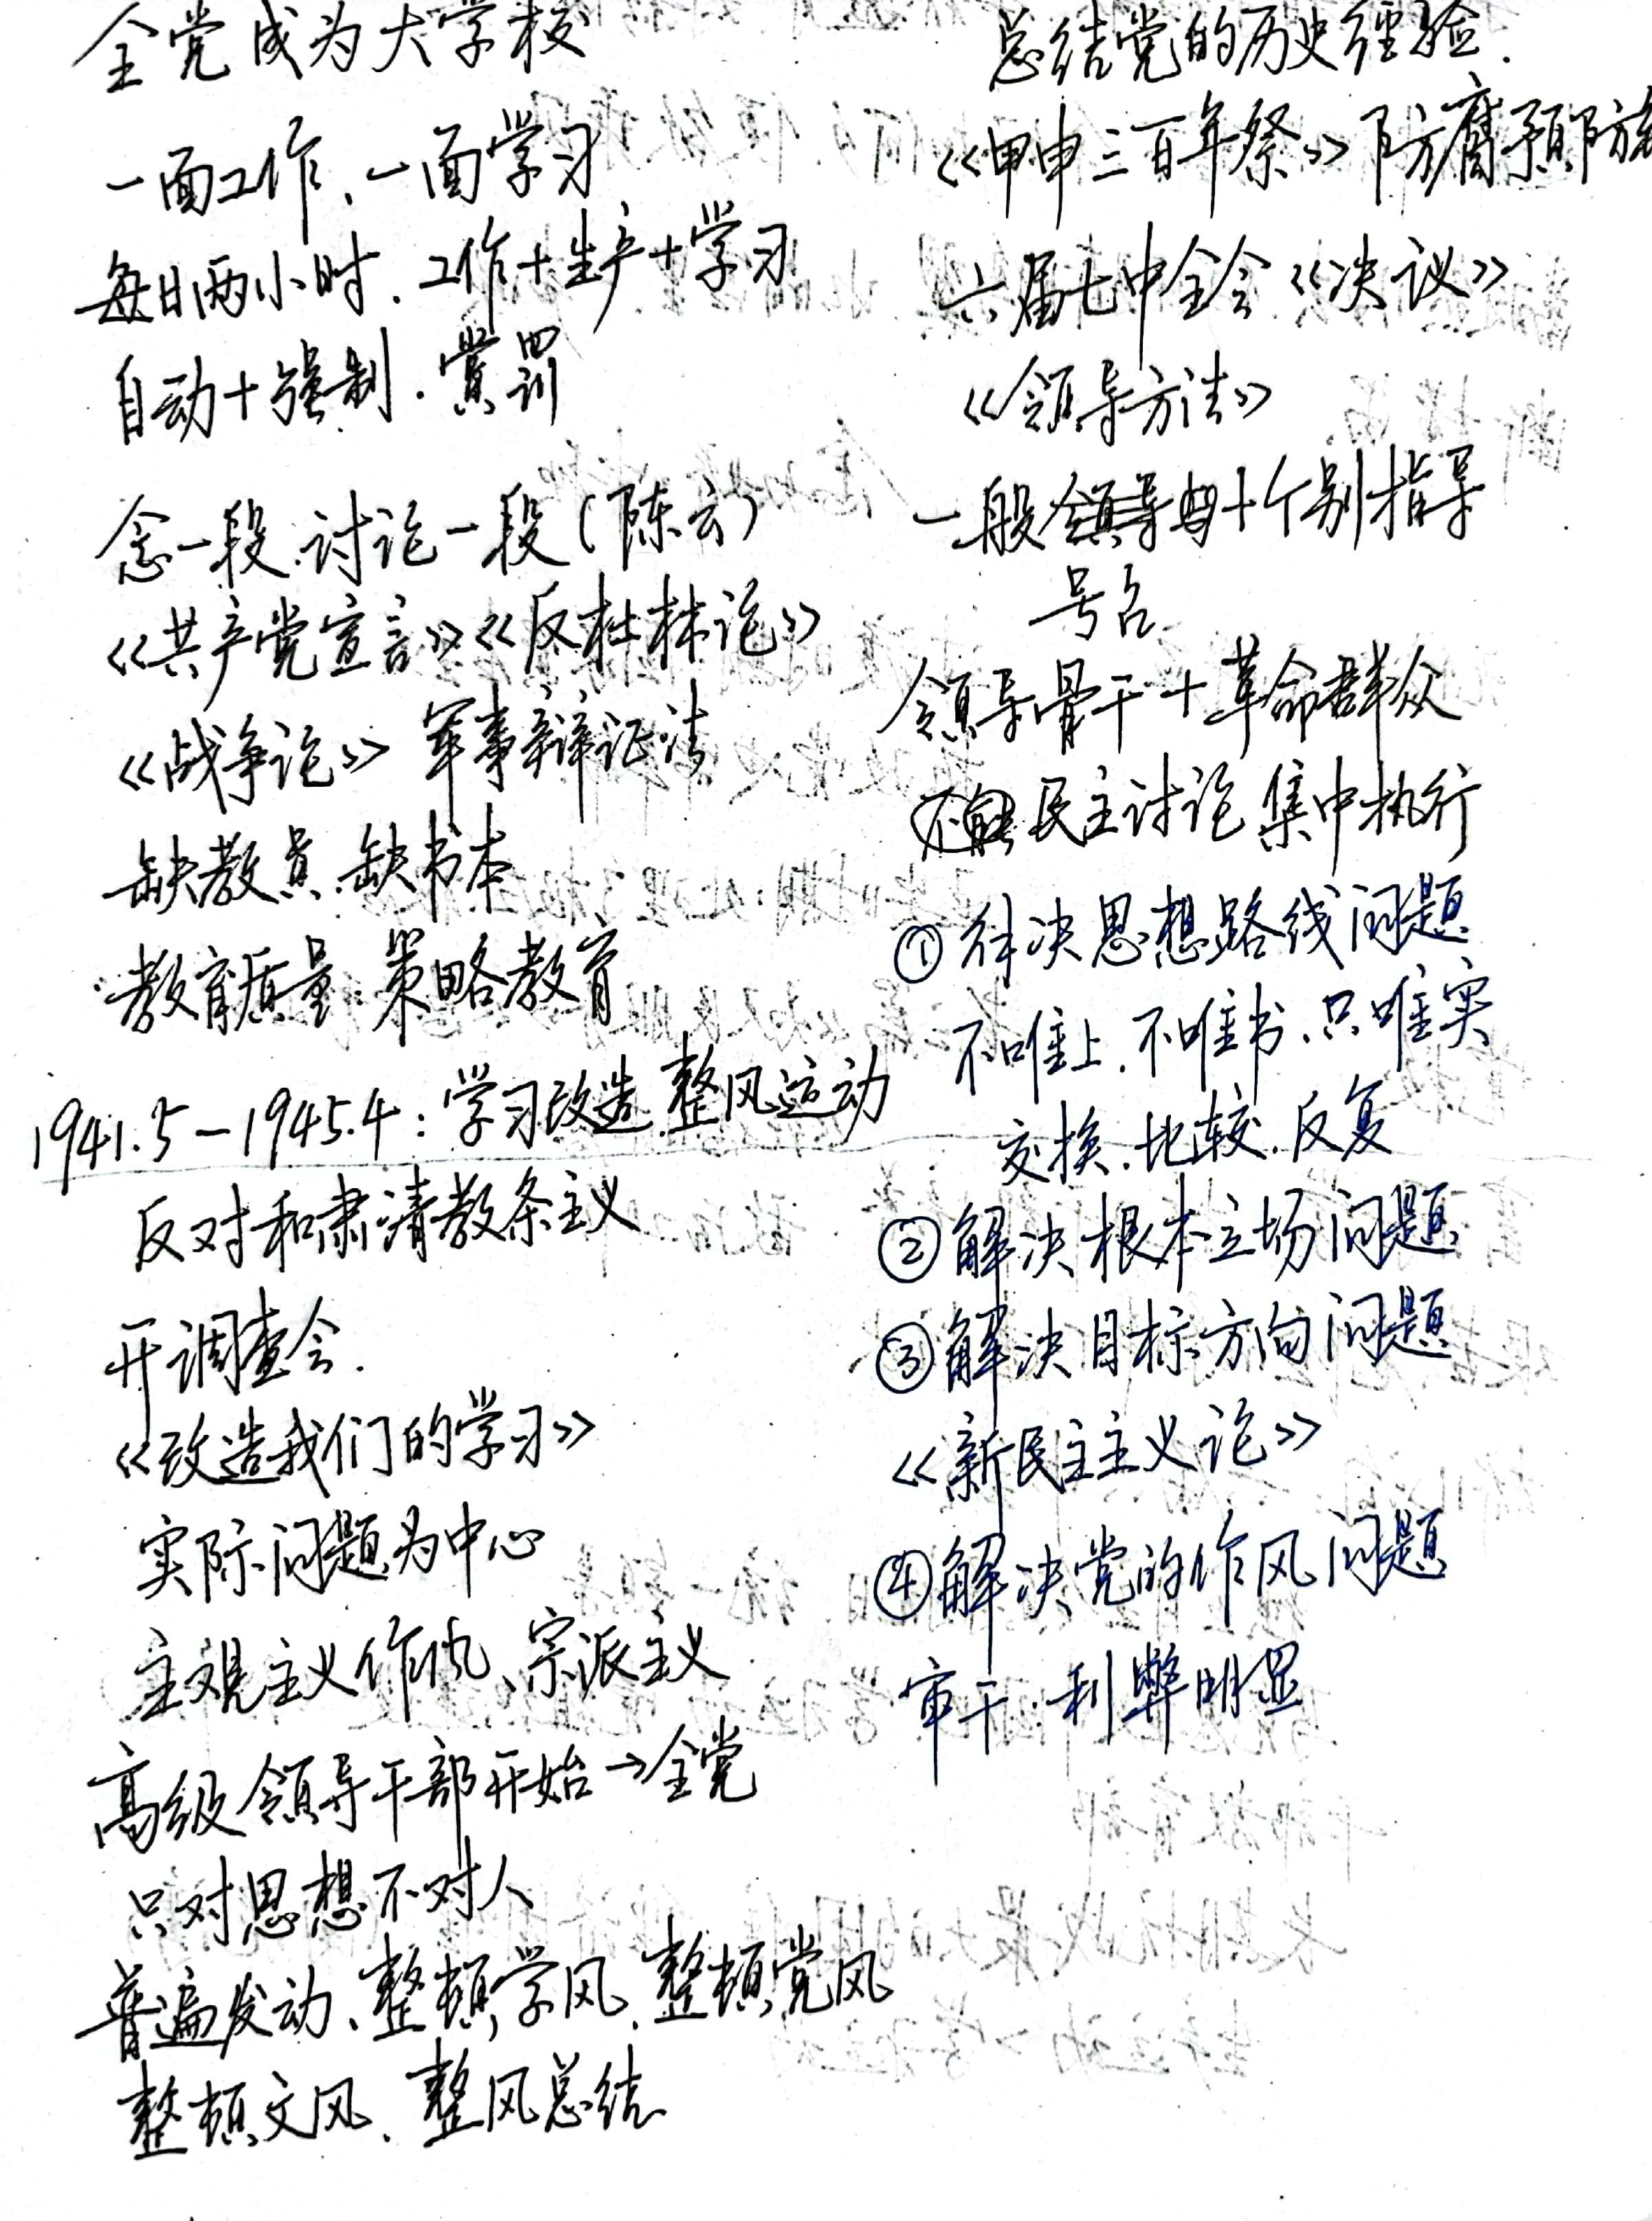 全党成为大学校
一面工作、一面学习
每日两小时.工作+生产+学习
自动+强制.赏罚
念一段.讨论一段(陈云)
《共产党宣言》《反杜林论》
《战争论》军事辩证法
缺教员.缺书本
教育质量.策略教育
1941.5-1945.4:学习改造.整风运动
反对和肃清教条主义
开调查会.
《改造我们的学习》
实际问题为中心
主观主义作风、宗派主义
高级领导干部开始→全党
只对思想不对人
普遍发动、整顿学风、整顿党风
整顿文风、整风总结
总结党的历史经验.
《甲申三百年祭》防腐预防
六届七中全会《决议》
《领导方法》
一般+个别指导
号召
领导骨干+革命群众
民主讨论集中执行
①解决思想路线问题
不唯上.不唯书.只唯实
交换.比较.反复
②解决根本立场问题
③解决目标方向问题
《新民主主义论》
④解决党的作风问题
审干.利弊明显